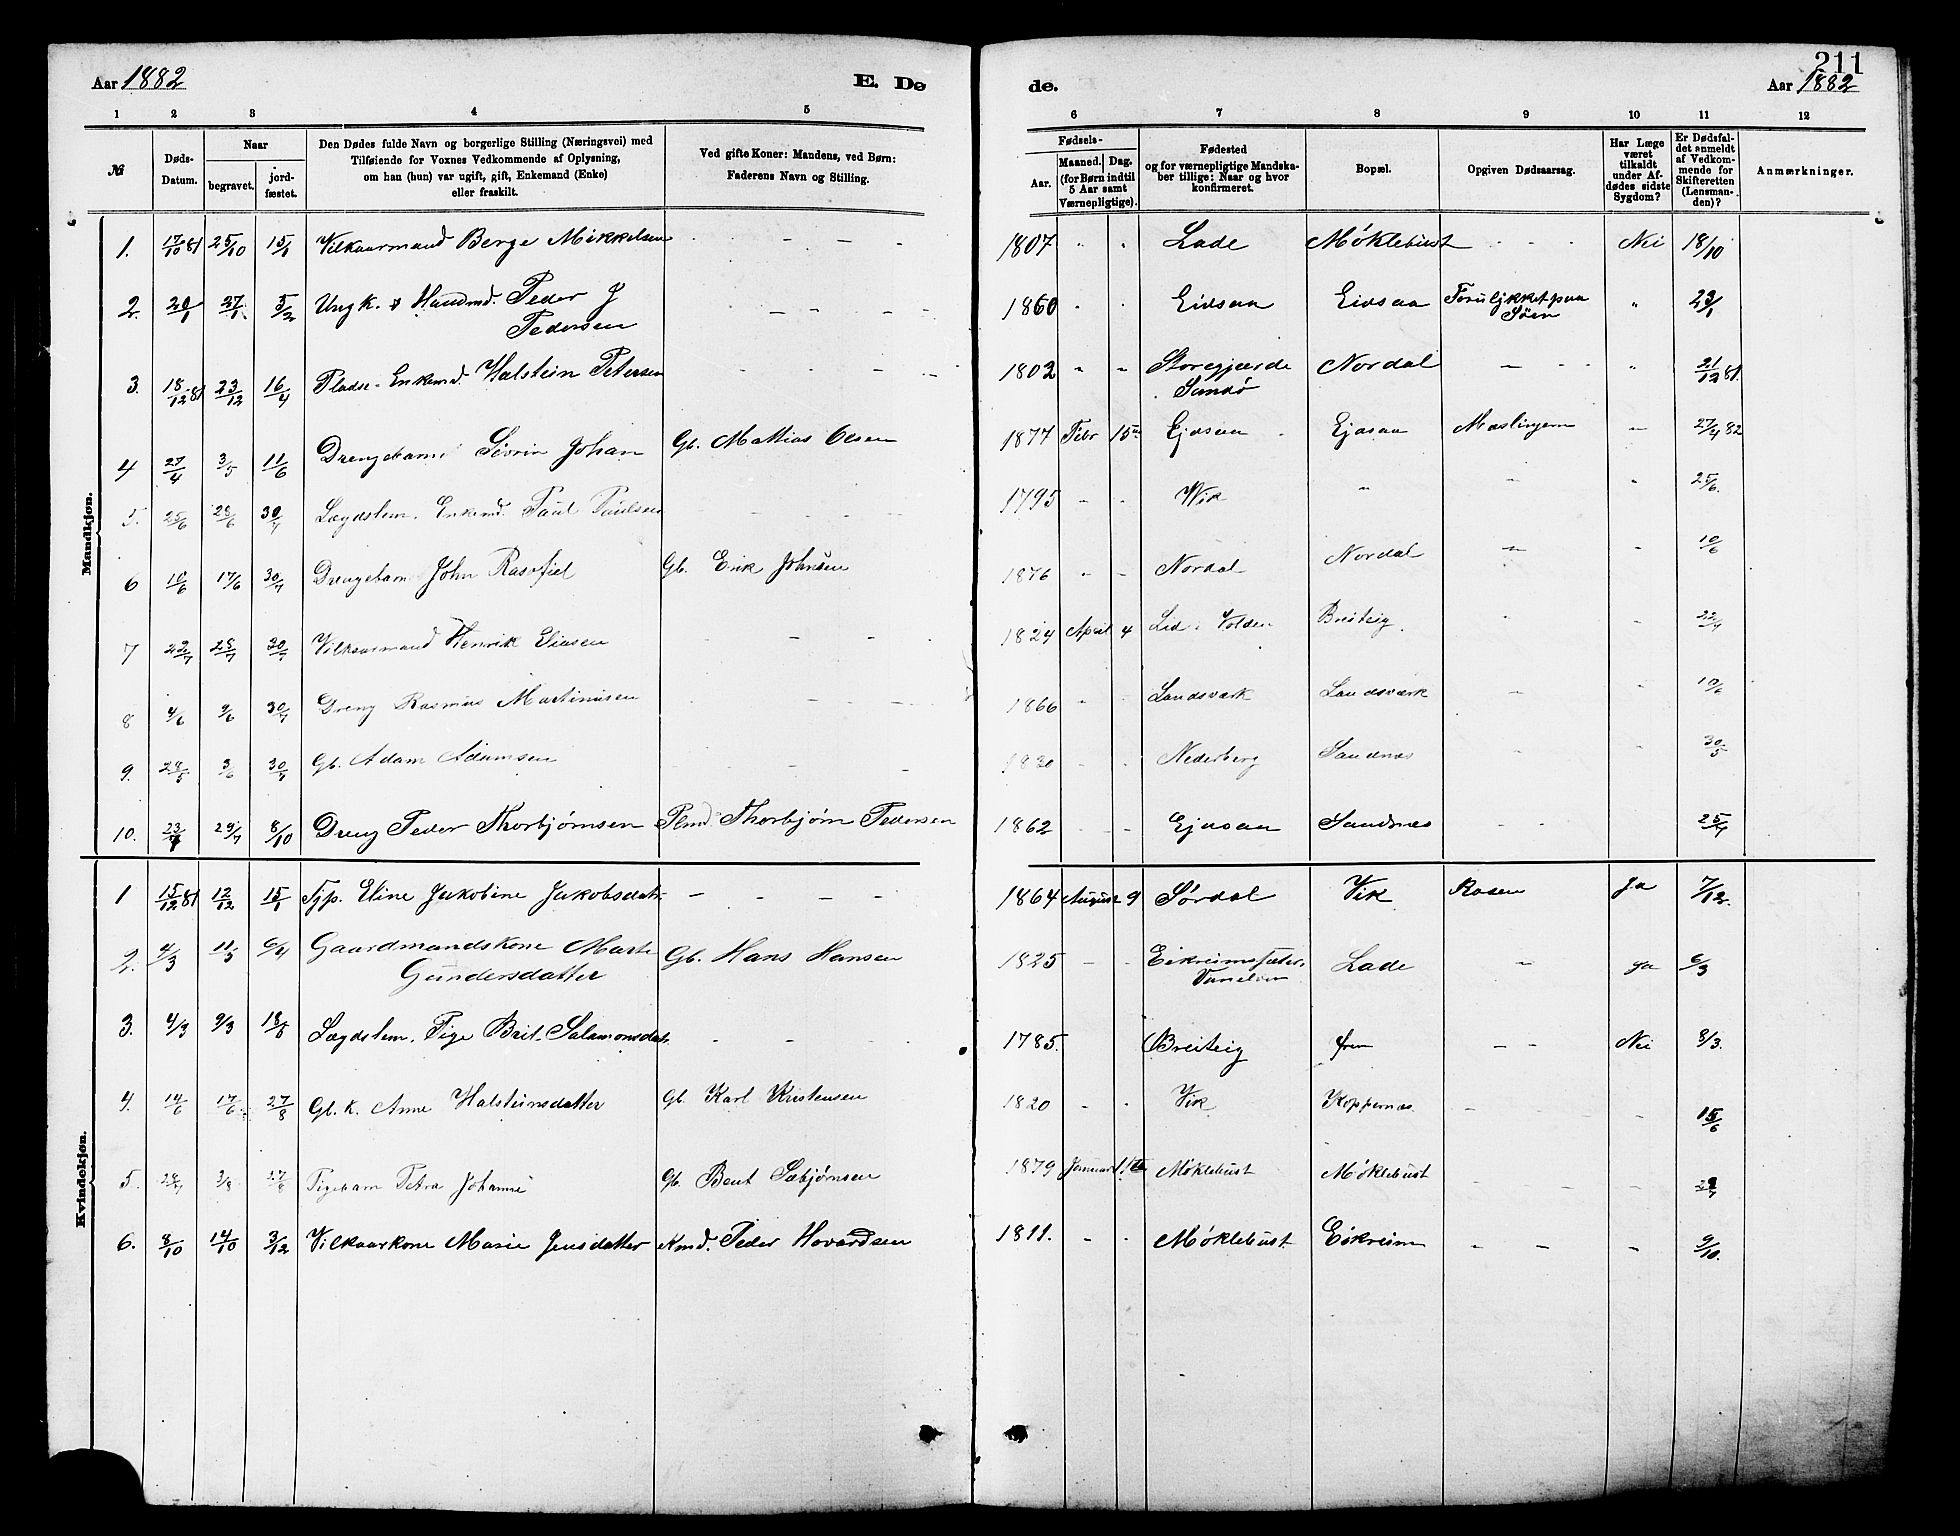 Aar 1882
E. Dø
de.
211
Aar 1882
1 2 3 4 5 6 7 8 9 10 11 12
№
Døds-Datum.
Naar
begravet.
jord-fæstet.
Den Dødes fulde Navn og borgerlige Stilling (Næringsvei) med
Tilføiende for Voxnes Vedkommende af Oplysning,
om han (hun) var ugift, gift, Enkemand (Enke)
eller fraskilt.
Ved gifte Koner: Mandens, ved Børn:
Faderens Navn og Stilling.
Fødsels-
Aar.
Maaned. Dag.
(for Børn indtil
5 Aar samt
Værnepligtige).
Fødested
og for værnepligtige Mandska-
ber tillige: Naar og hvor
konfirmeret.
Bopæl.
Opgiven Dødsaarsag.
Har Læge
været
tilkaldt
under Af-
dødes sidste
Sygdom?
Er Dødsfal-
det anmeldt
af Vedkom-
mende for
Skifteretten
(Lensman-
den)?
Anmærkninger.
Mandkjøn.
1. 17/10 81 25/10 15/1 Vilkaarmand Berge Mikkelsen - - - 1807 " " Lade Møklebust - - - Nei 18/10
2. 20/1 27/1 5/2 Ungk. & Haandmd. Peder J Pedersen - - - 1860 " " Eidsaa Eidsaa Forulykket paa Søen " 23/1
3. 18/12 81 23/12 16/4 Pladse-Enkemd. Halstein Petersen - - - 1802 " " Storegjærde Sandø Nordal - - - " 21/12 81.
4 27/4 3/5 11/6 Drengebarn Sivrin Johan Gb. Mattias Olsen 1877 Febr 15 Ejdsaa Ejdsaa Mæslingern - 27/4 82
5. 25/6 28/6 30/7 Lægdslem. Enkemd. Paul Paulsen - - - 1795 - - Wik " " " 25/6.
6 10/6 17/6 30/7 Drengebarn John Rasofiel Gb. Erik Johnsen 1876 - - Nordal Nordal " - 10/6
7 22/7 28/7 30/7 Vilkaarmand Henrik Eliasen - - - 1824 April 4 Lid i Volden Breiteig - - 22/7
8 4/6 9/6 30/7 Dreng Rasmus Martinusen - - - 1866 - - Landsværk Landsværk - - 10/6
9. 28/5 3/6 30/7 Gb. Adam Adamsen - - - 1830 - - Nederberg Sandnæs - - 30/5
10. 23/7 29/7 8/10 Dreng Peder Thorbjørnsen Plmd. Thorbjørn Pedersen 1862 - - - Ejdsaa Sandsnæs - - 25/7
Kvindekjøn.
1 15/12 81 12/12 15/1 Tjp. Eline Jakobine Jakobsdat. - - - - 1864 August 9 Sørdal Vik Rosen Ja 7/12.
2. 4/3 11/5 Gaardmandskone Marte Gundersdatter Gb. Hans Hansen 1825 - - Vanelven Lade " Ja 6/3
3. 4/3 9/3 18/6 Lægdslem. Pige Brit. Salamonsdat. - - - 1785. Breiteig - - Nei 8/3.
4. 14/6 17/6. 27/8 Gb. K. Anne Halsteinsdatter Gb. Karl Kristensen 1820 - - Vik Koppernæs. - - - 15/6
5. 28/7 3/8 27/8 Pigebarn Petra Johanne Gb. Bent Sæbjørnsen 1879 Januar Møklebust Møklebust - - - 29/7
6. 8/10 14/10 3/12 Vilkaarkone Marie Jensdatter Kmd. Peder Hovardsen 1811. - - Møklebust Eikreim - - - 9/10.